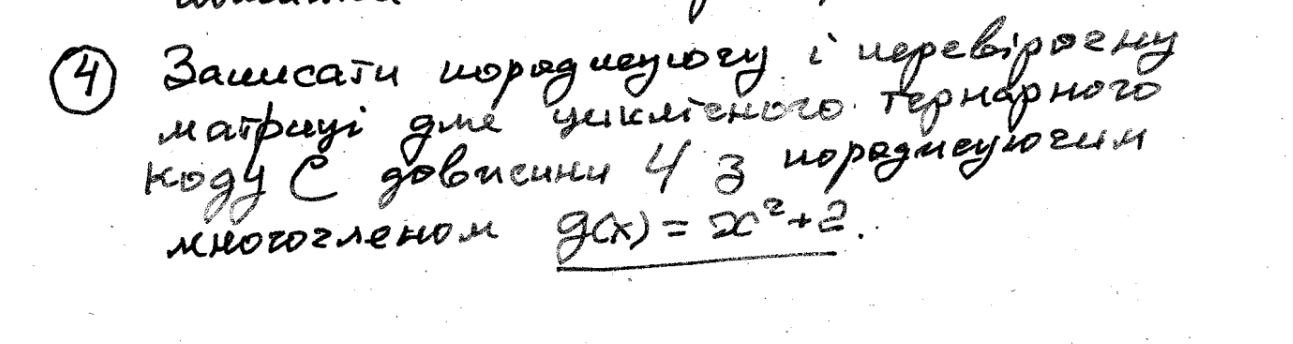 ④ Записати породжуючу і перевірочну
матриці для циклічного тернарного
коду C довжини 4 з породжуючим
многочленом g(x) = x² + 2.